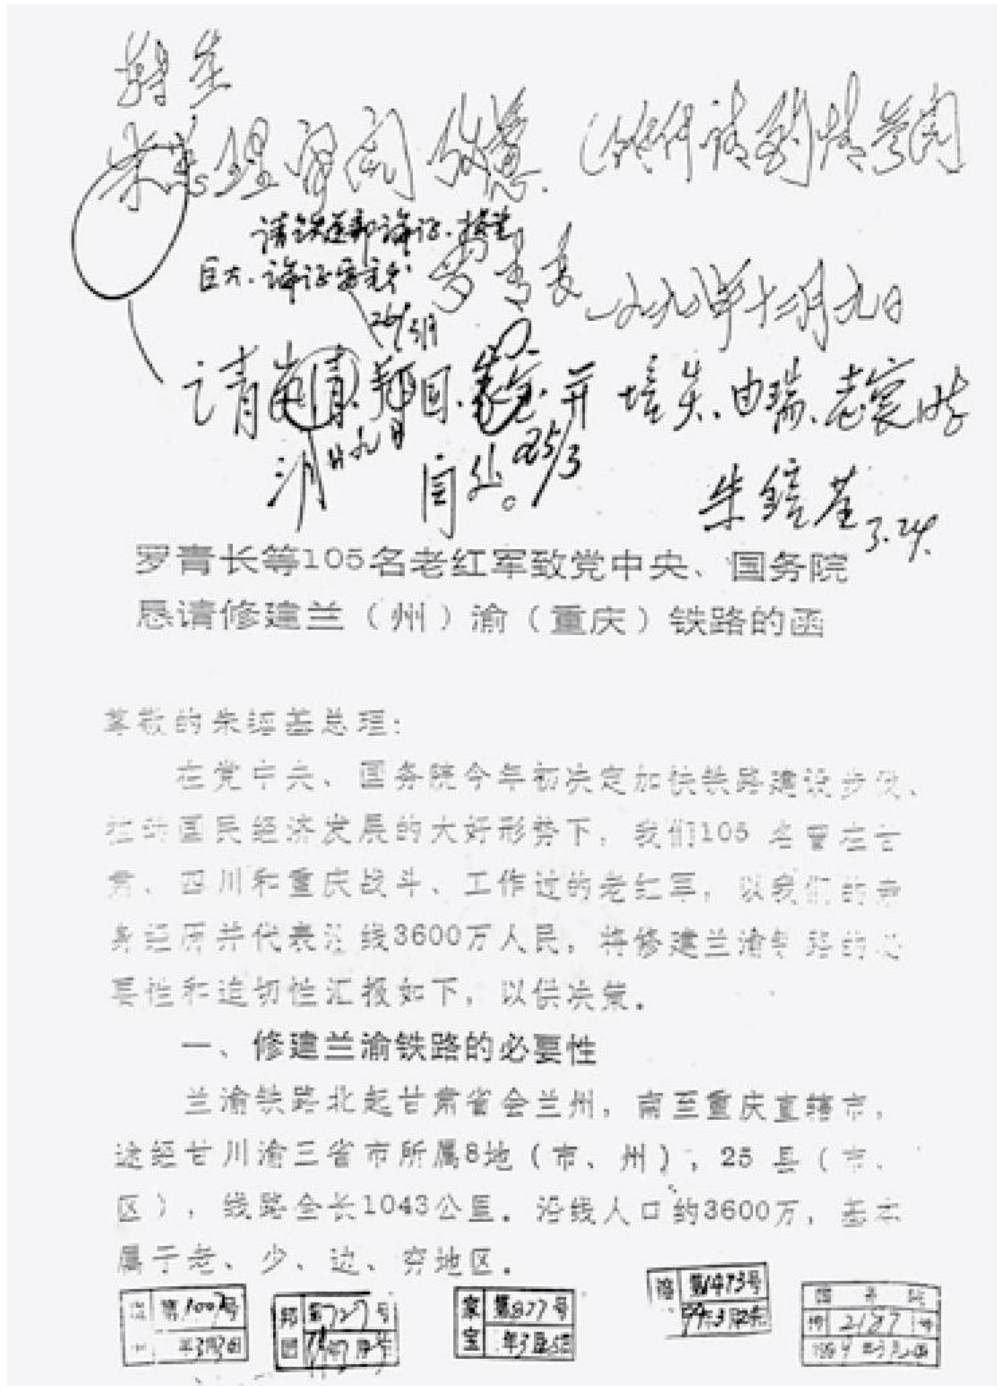 转呈
朱总理 审阅 致意. (附件请酌情参阅)
请铁道部论证.投资
巨大.论证要充分.
罗青长
一九九八年十二月九日
26/3月
请 家宝.并培炎、由瑞、志寰同志
阅处。
25/3
三月廿九日
朱镕基 3.24.
罗青长等105名老红军致党中央、国务院
恳请修建兰（州）渝（重庆）铁路的函
尊敬的朱镕基总理：
在党中央、国务院今年初决定加快铁路建设步伐、
拉动国民经济发展的大好形势下，我们105 名曾在甘
肃、四川和重庆战斗、工作过的老红军，以我们的亲
身经历并代表沿线3600万人民，将修建兰渝铁路的必
要性和迫切性汇报如下，以供决策。
一、修建兰渝铁路的必要性
兰渝铁路北起甘肃省会兰州，南至重庆直辖市，
途经甘川渝三省市所属8地（市、州），25 县（市、
区），线路全长1043公里。沿线人口约3600万，基本
属于老、少、边、穷地区。
第1007号
邦国 第727号
家宝 第877号
第1473号
国务院
2187